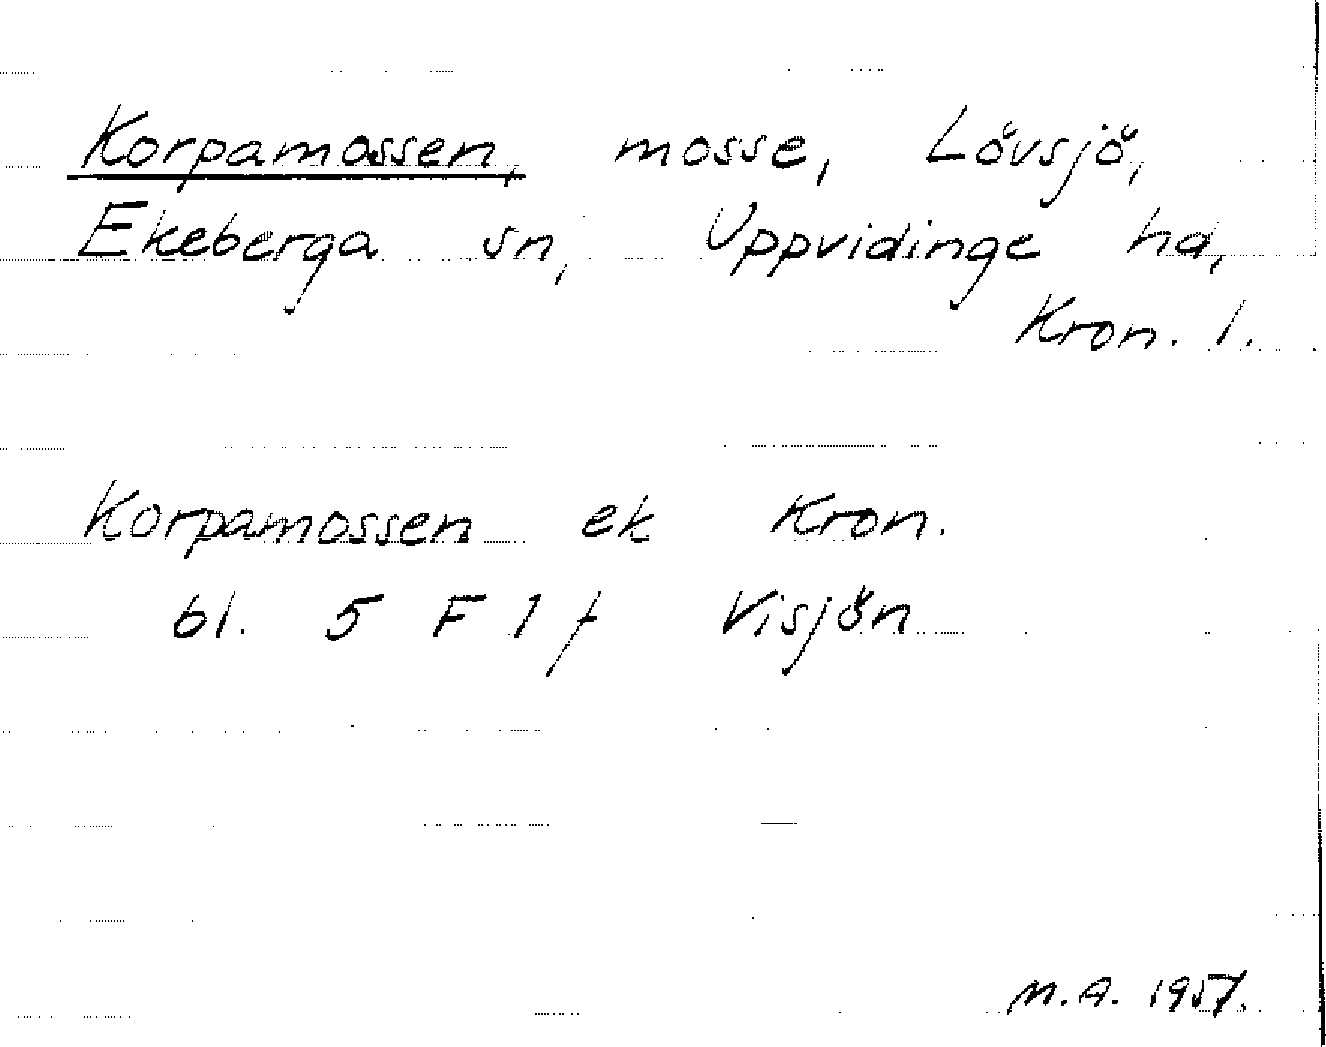 Korpamossen, mosse, Lövsjö,
Ekeberga sn, Uppvidinge hd,
Kron. l.
Korpamossen ek Kron.
bl. 5 F 1 f Visjön
M.A. 1957.